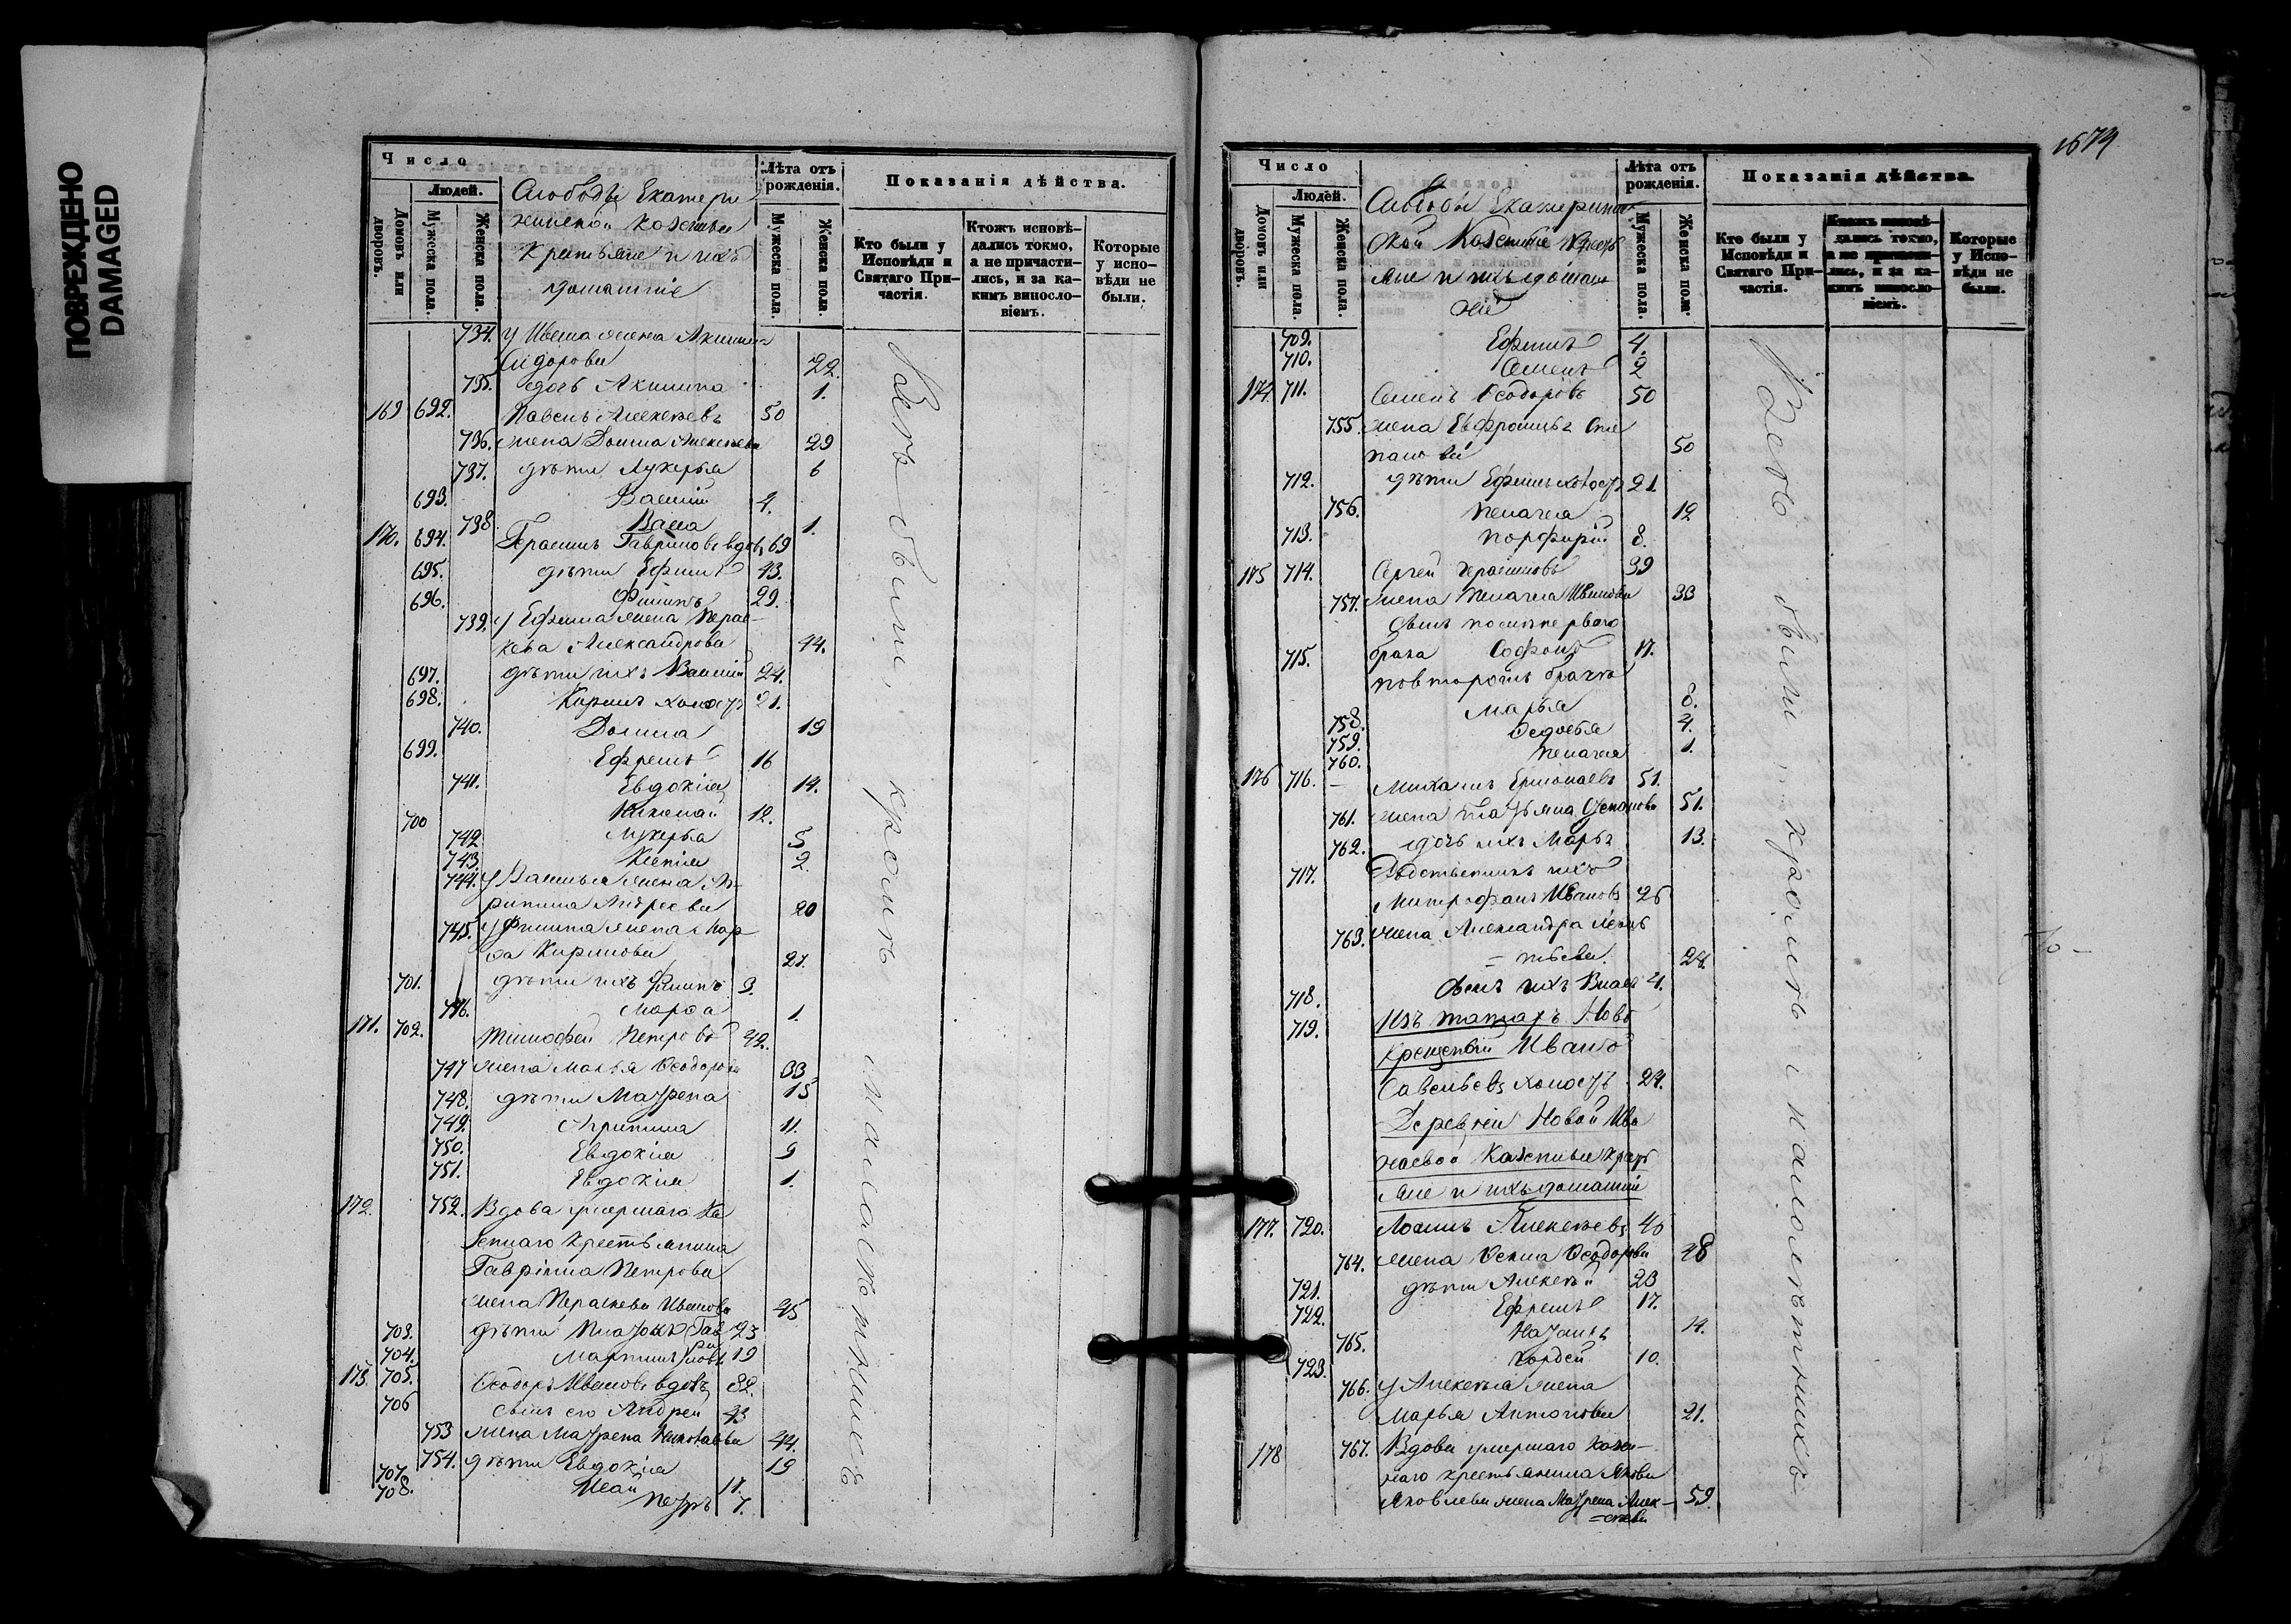 ПОВРЕЖДЕНО
DAMAGED
Число
Людей.
Домовъ или дворовъ.
Мужеска пола.
Женска пола.
Слободы Екатери
нинской казенные
крестьяне и ихъ
домашніе
Лѣта отъ рожденія.
Мужеска пола.
Женска пола.
Показанія дѣйства.
Кто были у Исповѣди и Святаго Причастія.
Ктожъ исповѣдались токмо, а не причастились, и за какимъ винословіемъ.
Которые у исповѣди не были.
734. У Ивана жена Акилина
Сидорова 22.
735. дочь Акилина 1.
169 692. Павелъ Алексѣевъ 50
736. жена Домна Алексѣева 29
737. дѣти Лукерья 6
693. Василій 4.
738. Васса 1.
170. 694. Герасимъ Гавриловъ вдовъ 69
695. дѣти Ефимъ 43.
696. Филипъ 29.
739. У Ефима жена Парас-
кева Александрова 44.
697. дѣти ихъ Василій 24.
698. Кирилъ холостъ 21.
740. Домна 19
699. Ефремъ 16
741. Евдокія 14.
700 Николай 12.
742. Лукерья 5
743. Ксенія 2.
744. У Василья жена Аг-
рипина Андреева 20
745. У Филипа жена Мар-
ѳа Кирилова 21.
701. дѣти ихъ Филипъ 3.
746. Марѳа 1.
171. 702. Тимофей Петровъ 42.
747 жена Марья Ѳеодорова 33
748. дѣти Матрена 15
749. Агрипина 11.
750. Евдокія 9
751. Евдокія 1.
172. 752. Вдова умершаго ка
зеннаго крестьянина
Гавріила Петрова
жена Параскева Иванова 45
703. дѣти Платонъ Гав 23
704. Мартинъ риловы 19
173. 705. Ѳеодоръ Ивановъ вдовъ 82.
706 сынъ его Андрей 43
753 жена Матрена Николаева 44.
754. дѣти Евдокія 19
707. Исай 11.
708. Петръ 7.
Всѣ были, кромѣ малолѣтнихъ
1674
Число
Людей.
Домовъ или дворовъ.
Мужеска пола.
Женска пола.
Слободы Екатеринин
ской Казенные Кресть
яне и ихъ домаш
ніе
Лѣта отъ рожденія.
Мужеска пола.
Женска пола.
Показанія дѣйства.
Кто были у Исповѣди и Святаго Причастія.
Ктожъ исповѣдались токмо, а не причастились, и за какимъ винословіемъ.
Которые у Исповѣди не были.
709. Ефимъ 4.
710. Семенъ 2
174. 711. Семенъ Ѳеодоровъ 50
755. жена Евфросинья Сте
панова 50
712. дѣти Ефимъ холостъ 21.
756. Пелагея 12
713. Порфирій 8.
175 714. Сергей Герасимовъ 39
757. жена Пелагея Иванова 33
сынъ послѣ перваго
715. брака Софонъ 17.
по второмъ бракѣ
758. Марья 8.
759. Ѳедосья 4.
760. Пелагея 1.
176 716. Михаилъ Ермолаевъ 51.
761. жена Татьяна Степанова 51.
762. дочь ихъ Марья 13.
717. Родственникъ ихъ
Митрофанъ Ивановъ 26
763. жена Александра Леонть
=тьева. 24.
718. сынъ ихъ Власъ 4.
719. Изъ татаръ Ново
крещеный Иванъ
Савельевъ холостъ 24.
Деревни Новой Ива
наевой Казенные кресть
яне и ихъ домашніе
177. 720. Логинъ Алексѣевъ 45
764. жена Ѳекла Ѳеодорова 48
721. дѣти Алексѣй 23
722. Ефремъ 17.
765. Наталья 14.
723. Гордей 10.
766. У Алексѣя жена
Марья Антонова 21.
178 767. Вдова умершаго казе-
наго крестьянина Якова
Яковлева жена Матрена Алек-
=сѣева 59.
Всѣ были кромѣ малолѣтнихъ